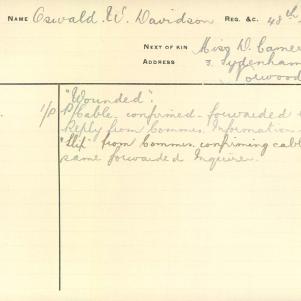 NAME Oswald. W. Davidson REG. &C. 48th
NEXT OF KIN Miss D. Camer
ADDRESS 3. Sydenham
Norwood
"Wounded".
1/P P/Cable. confirmed. forwarded
Reply from Commes. Information
"Slip" from Commes. confirming cabl
same forwarded Inquirer.